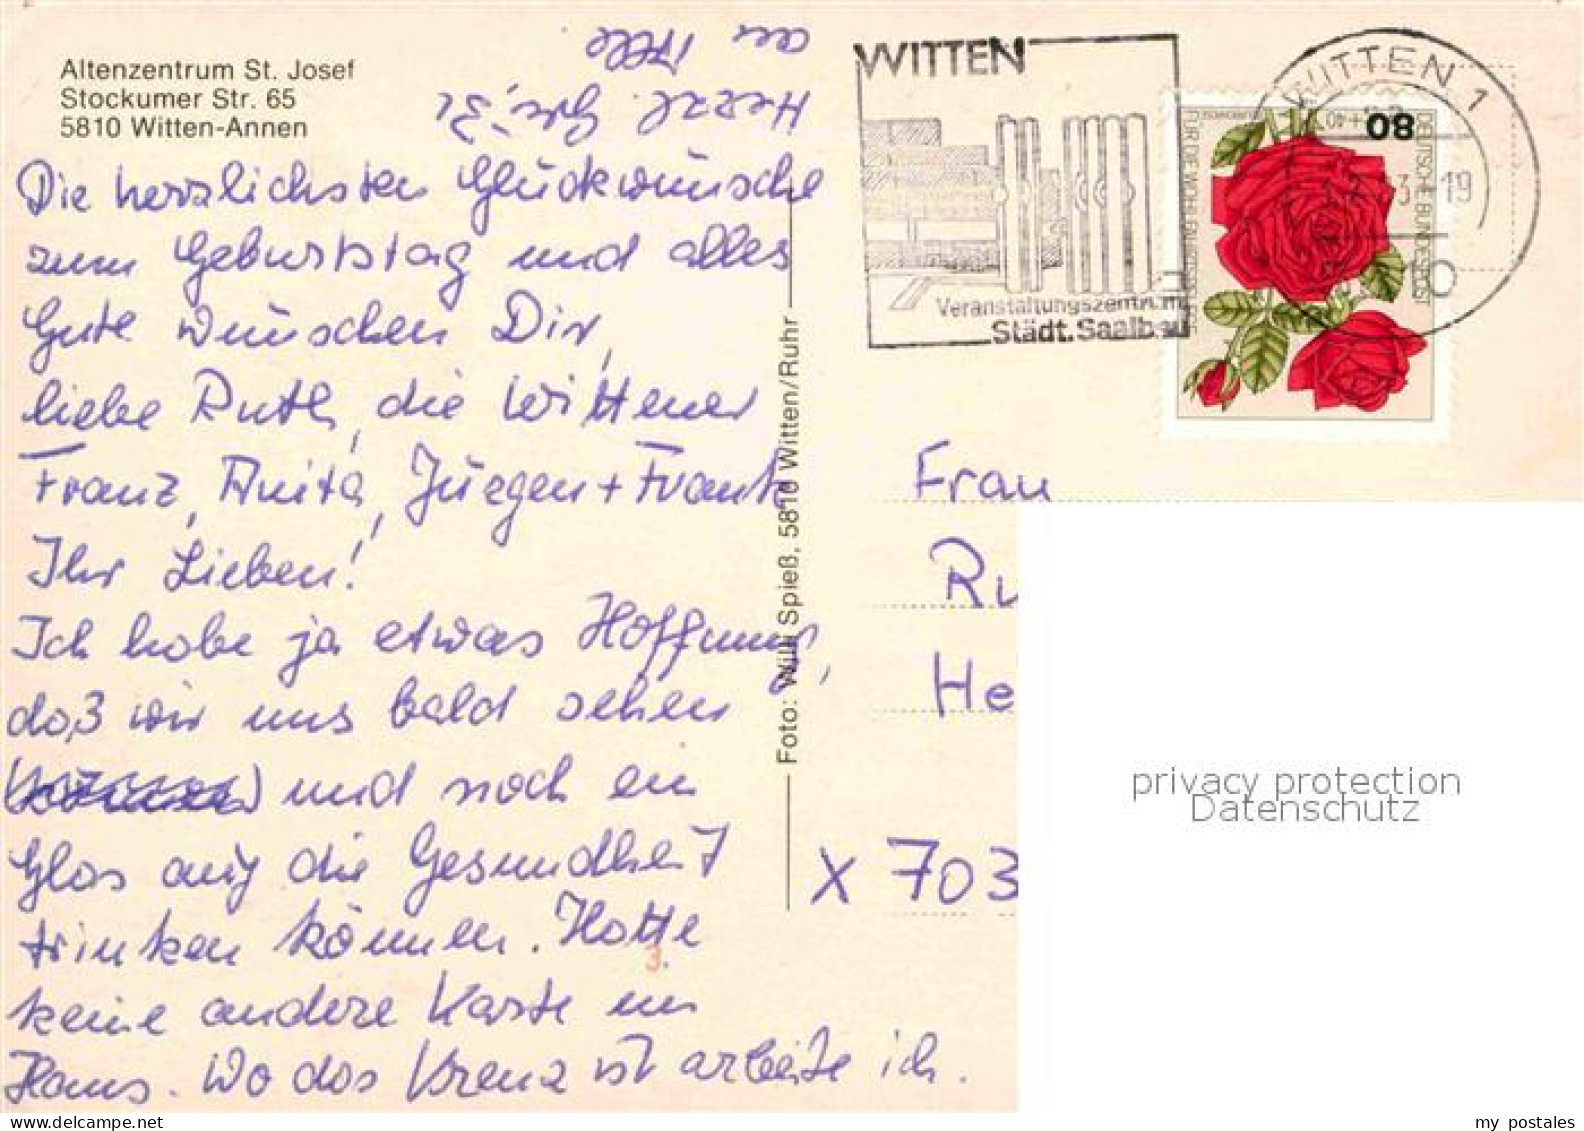 Altenzentrum St. Josef
Stockumer Str. 65
5810 Witten-Annen
Die herzlichsten Glückwünsche
zum Geburtstag und alles
Gute wünschen Dir,
liebe Ruth, die Wittener
Franz, Anita, Jürgen + Frank
Ihr Lieben!
Ich habe ja etwas Hoffnung,
daß wir uns bald sehen
und noch ein
Glas auf die Gesundheit
trinken können. Hatte
keine andere Karte im
Haus. Wo das Kreuz ist arbeite ich.
Herzl. Grüße
an Alle
Foto: Willi Spieß, 5810 Witten/Ruhr
WITTEN
Veranstaltungszentrum
Städt. Saalbau
WITTEN 1
80
+40
DEUTSCHE BUNDESPOST
FÜR DIE WOHLFAHRTSPFLEGE
Frau
Ru
He
X 703
3.
privacy protection
Datenschutz
my postales